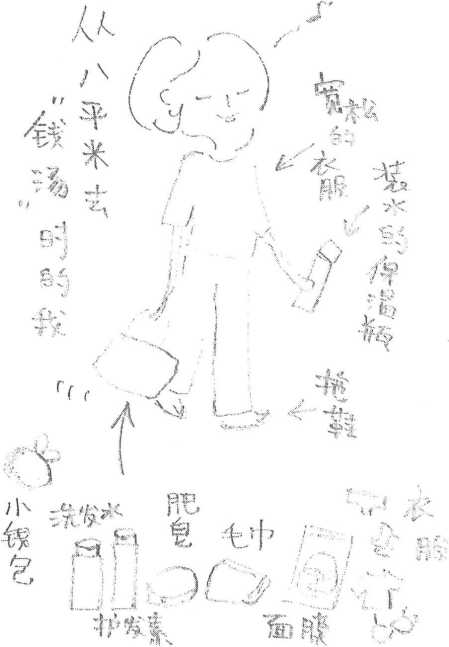 从八平米去
“钱汤”时的我
宽松的衣服
装水的保温瓶
拖鞋
小钱包
洗发水
护发素
肥皂
毛巾
面膜
衣服